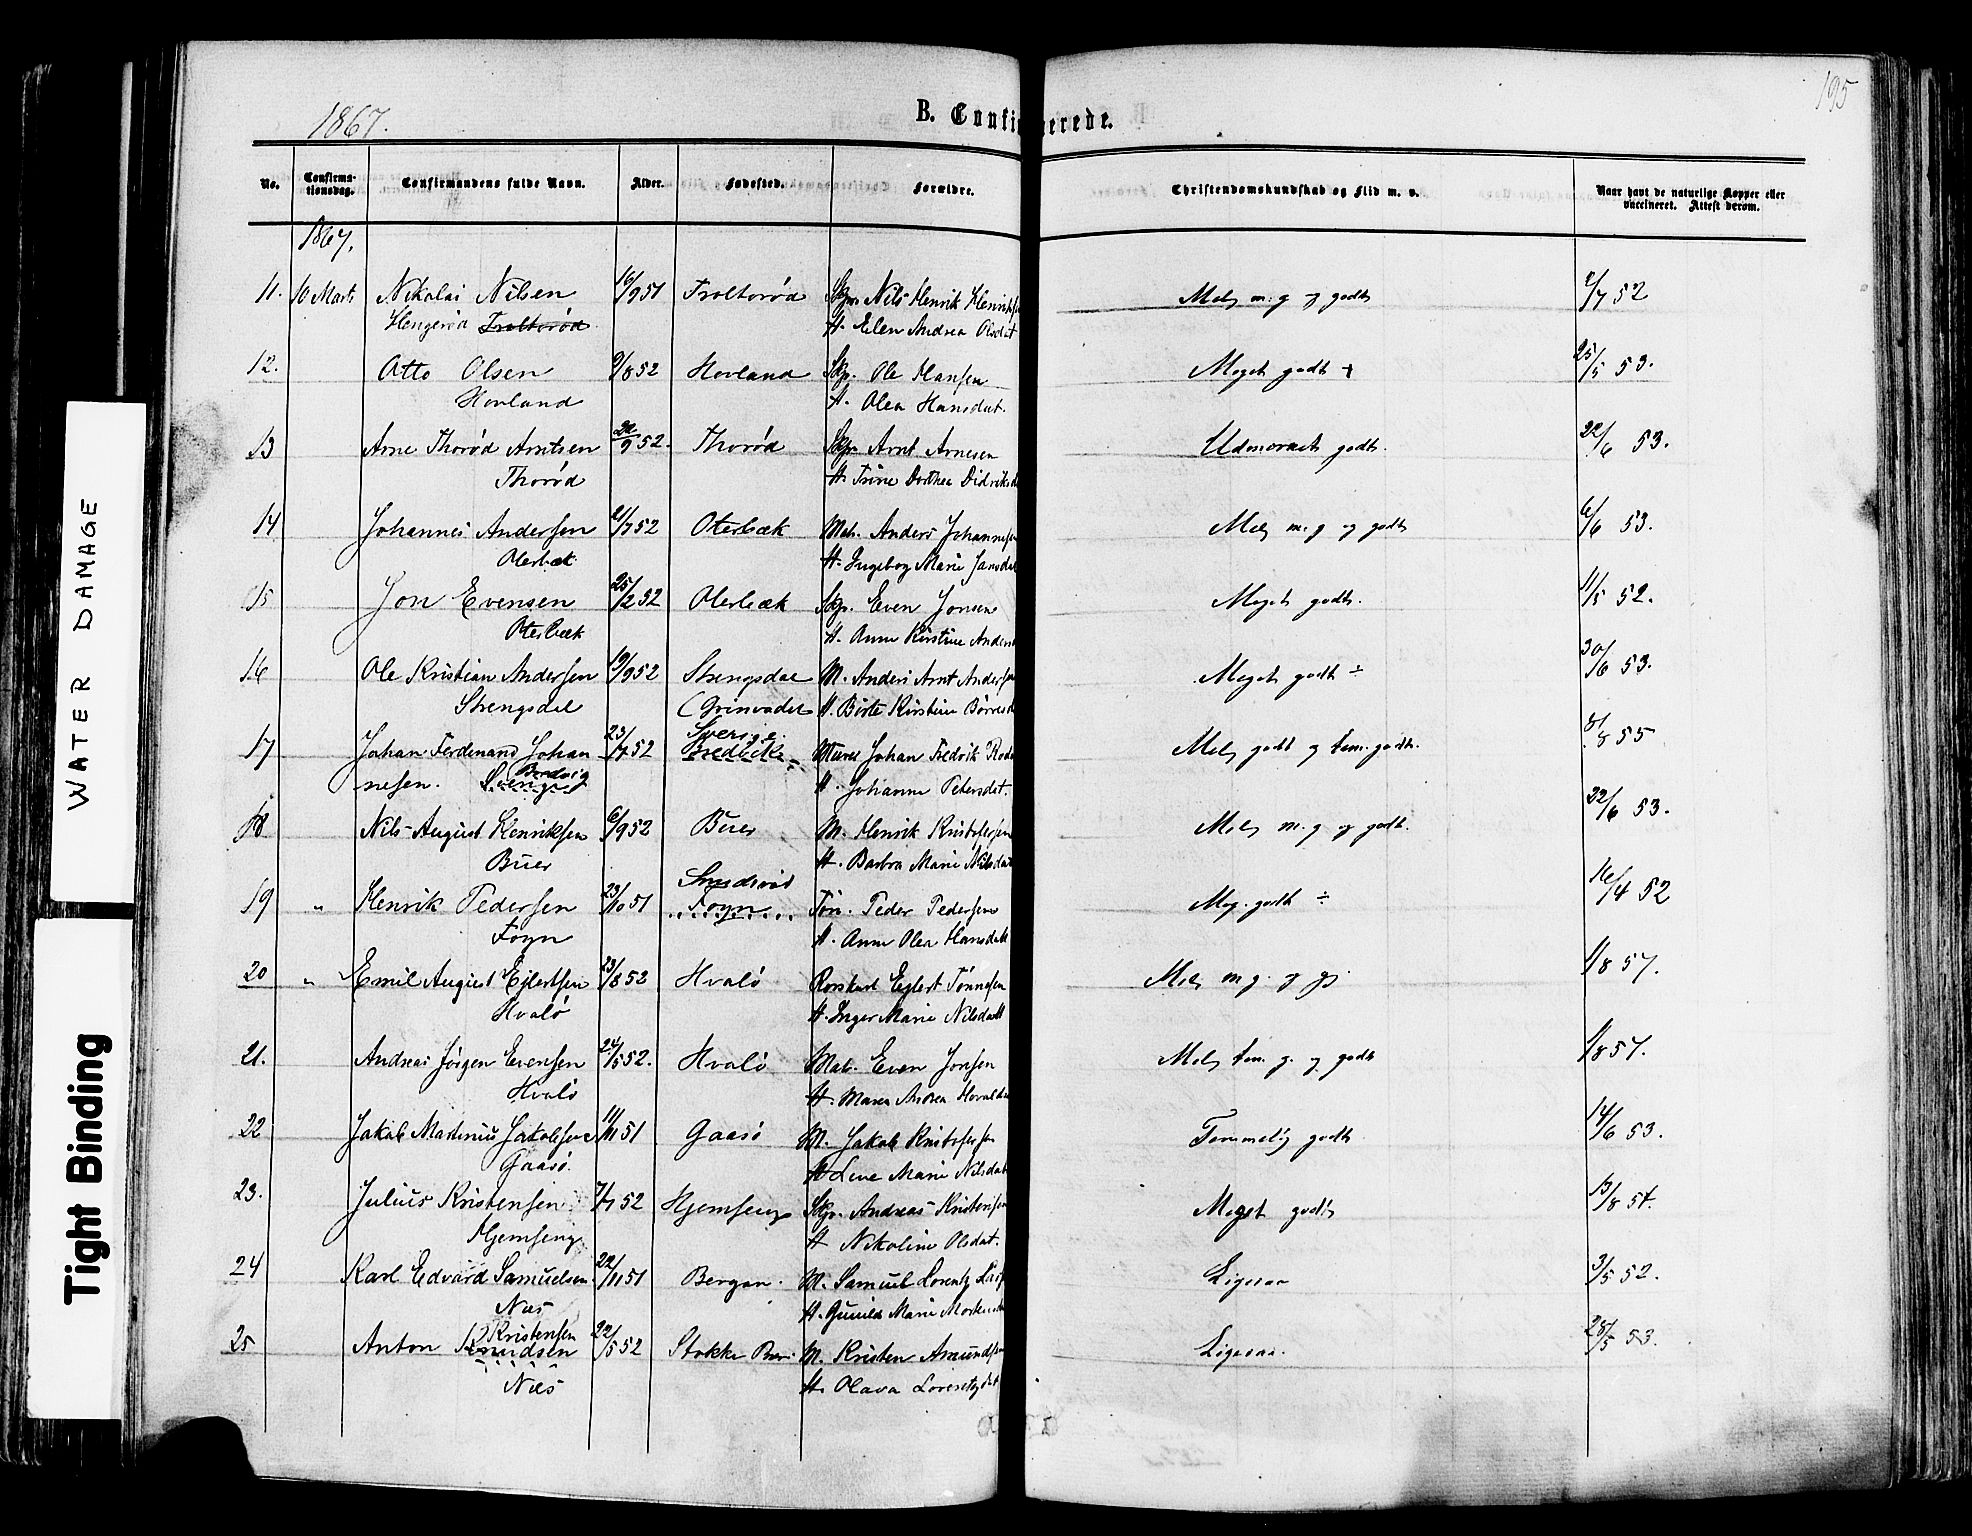 195
1867.
B. Confirmerede.
No. Confirmationsdag. Confirmandens fulde Navn. Alder. Fødested. Forældre. Christendomskundskab og Flid m. v. Naar havt de naturlige Kopper eller vaccineret. Attest derom.
1867.
11. 10 Marts Nikolai Nilsen 16/9 51 Troltorød Skpr. Nils Henrik Henriks Mel. m. g. og godt 52
Hengerød Troltorød H. Elen Andrea Olsdat
12. Otto Olsen 9/8 52 Hovland Skp. Ole Hansen Meget godt + 25/5 53.
Hovland H. Olea Hansdat.
13 Arne Thorød Arntsen 9 52. Thorød Skpr. Arnt Arnesen Udmerket godt. 22/6 53.
Thorød H. Trine Dorthea Didriks
14 Johannes Andersen 21/7 52 Oterbæk Mat. Anders Johannes Mel. m. g og godt 6/6 53.
Oterbæk H. Ingeborg Marie Jansdat
15 Jon Evensen 25/2 52 Oterbæk Skp. Even Jonsen Meget godt. 11/5 52.
Oterbæk H. Anne Kirstine Anders
16 Ole Kristian Andersen 19/9 52 Strengsdal M. Anders Arnt Anders Meget godt ÷ 30/6 53.
Strengsdal (Grinvadet H. Birte Kirstine Børres
17 Johan Ferdinand Johan 23/7 52 Sverige. Murer Johan Fredrik Mel. godt og tem. godt. 8/8 55
nesen. Sverige H. Johanne Petersdat.
18 Nils August Henriksen 6/9 52 Buer M. Henrik Kristofersen Mel. m. g og godt. 22/6 53.
Buer H. Barbra Marie Nilsdat
Smidsrød
19 " Henrik Pedersen 23/10 51 Føyn Tøn. Peder Pedersen Meg. godt ÷ 16/4 52
Føyn H. Anne Olea Hansdatt
20 " Emil August Ejlertsen 23/8 52 Hvalø Ejlert Tønnesen Mel. m g. og g. 1/8 57.
Hvalø H. Inger Marie Nilsdatt
21. Andreas Jørgen Evensen 24/5 52. Hvalø Mat. Even Jonsen Mel. tem. g. og godt 1/8 57.
Hvalø H. Maren Andrea
22 Jakob Martinius Jakobsen 11/11 51 Gaasø M. Jakob Kristofersen Temmelig godt 14/6 53.
Gaasø. H. Lene Marie Nilsdat
23. Julius Kristensen 7/7 52 Hjemseng Skpr. Andreas Kristensen Meget godt 13/8 54.
Hjemseng H Nikoline Olsdat.
24 Karl Edvard Samuelsen 22/11 51 Bergan. M. Samuel Lorentz Ligesaa 3/5 52.
Næs H. Gunild Marie
Kristensen
25 Anton Knudsen 22/5 52 Stokke M. Kristen Amunds Ligesaa. 28/5 53.
Næs H. Olava Lorentzdat
WATER DAMAGE
Tight Binding